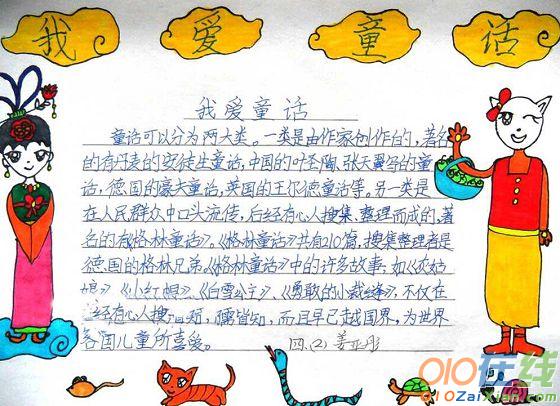 我 爱 童 话
我爱童话
童话可以分为两大类。一类是由作家创作的,著名
的有丹麦的安徒生童话,中国的叶圣陶、张天翼写的童
话,德国的豪夫童话,英国的王尔德童话等。另一类是
在人民群众中口头流传,后经有心人搜集、整理而成的,著
名的有《格林童话》。《格林童话》共有210篇,搜集整理者是
德国的格林兄弟。《格林童话》中的许多故事:如《灰姑
娘》《小红帽》、《白雪公主》、《勇敢的小裁缝》,不仅在
经有心人搜 皆知,而且早已走越国界,为世界
各国儿童所喜爱。 四.(2) 姜亚彤
010在线
010ZaiXian.com